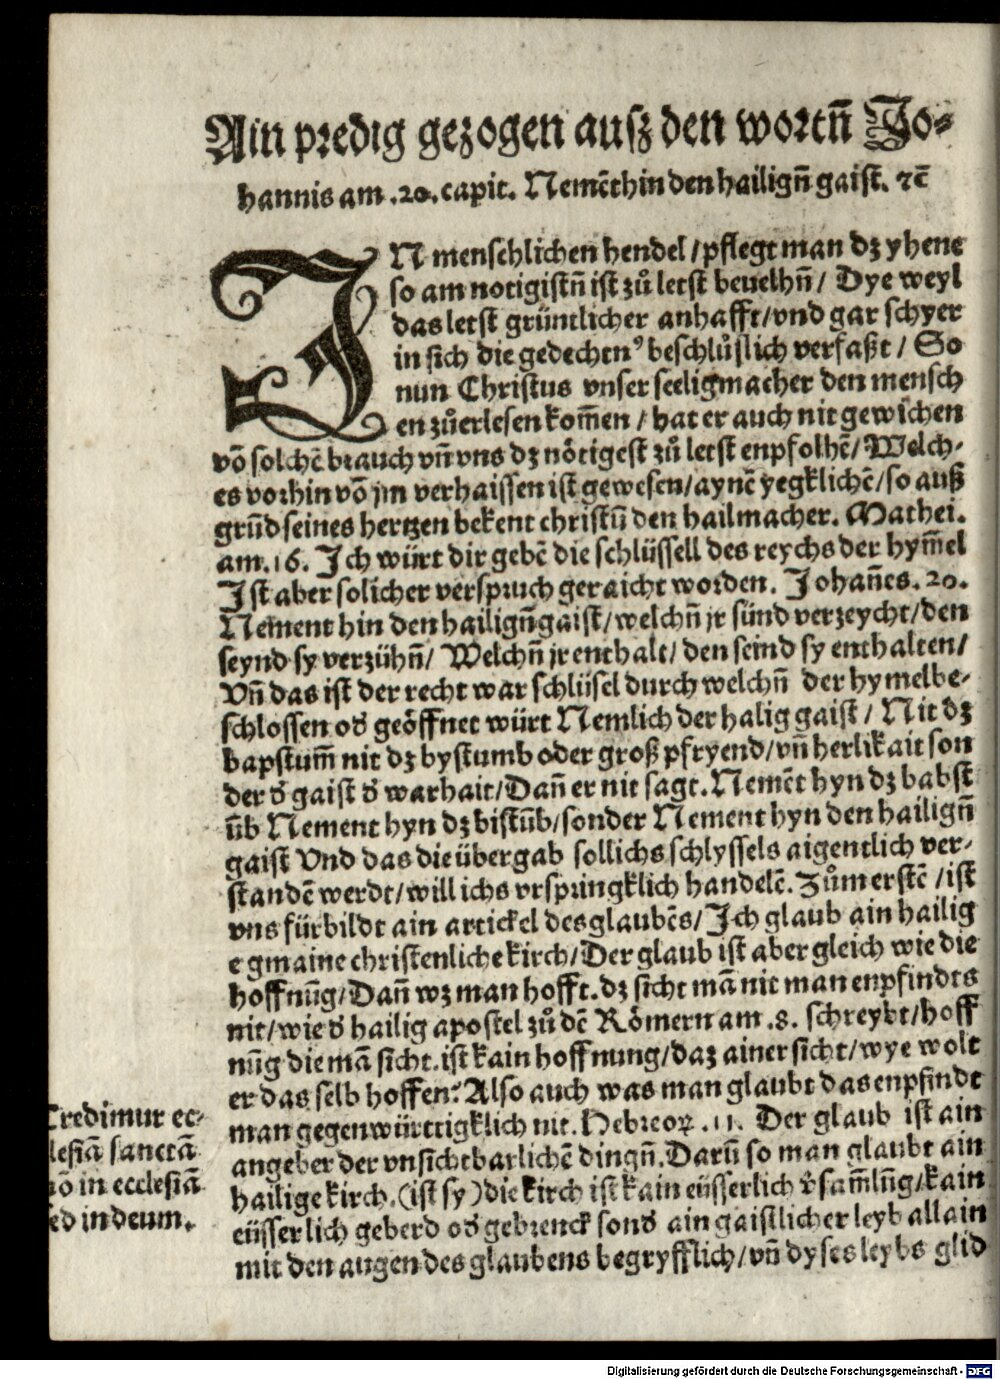 Ain predig gezogen ausz den wortn̄ Jo⸗
hannis am .20. capit. Nemēt hin den hailign̄ gaist. ⁊c̄
IN menschlichen hendel / pflegt man dz yhene
so am notigistn̄ ist zů letst beuelhn̄ / Dye weyl
das letst grüntlicher anhafft / vnd gar schyer
in sich die gedechtn⁹ beschlůslich verfaßt / So
nun Christus vnser seeligmacher den mensch
en zůerlesen kom̄en / hat er auch nit gewichen
vō solchē brauch vn̄ vns dz nōtigest zů letst enpfolhē / Welch⸗
es vorhin vō jm verhaissen ist gewesen / aynē yegklichē / so auß
grūd seines hertzen bekent christū den hailmacher. Mathei.
am .16. Ich würt dir gebē die schlüssell des reychs der hym̄el
Ist aber solicher verspruch geraicht worden. Johan̄es .20.
Nement hin den hailign̄ gaist / welchn̄ jr sünd verzeycht / den
seynd sy verzühn̄ / Welchn̄ jr enthalt / den seind sy enthalten /
Vn̄ das ist der recht war schlüsel durch welchn̄ der hymel be⸗
schlossen od̕ geöffnet würt Nemlich der halig gaist / Nit dz
bapstum̄ nit dz bystumb oder groß pfryend / vn̄ herlikait son
der d̕ gaist d̕ warhait / Dan̄ er nit sagt. Nemēt hyn dz babst
ūb Nement hyn dz bistūb / sonder Nement hyn den hailign̄
gaist Vnd das die übergab sollichs schlyssels aigentlich ver⸗
standē werdt / will ichs vrsprūngklich handelē. Zům erstē / ist
vns fürbildt ain artickel des glaubēs / Ich glaub ain hailig
e gmaine christenliche kirch / Der glaub ist aber gleich wie die
hoffnūg / Dan̄ wz man hofft. dz sicht mā nit man enpfindts
nit / wie d̕ hailig apostel zů dē Römern am .8. schreybt / hoff
nūg die mā sicht. ist kain hoffnung / daz ainer sicht / wye wolt
er das selb hoffen? Also auch was man glaubt das enpfindt
man gegenwürttigklich nit. Hebreoꝝ .11. Der glaub ist ain
angeber der vnsichtbarlichē dingn̄. Darū so man glaubt ain
hailige kirch. (ist sy) die kirch ist kain eüsserlich v̕sam̄lūg / kain
eüsserlich geberd od̕ gebrenck sond̕ ain gaistlicher leyb allain
mit den augen des glaubens begryfflich / vn̄ dyses leybs glid
Credimur ec⸗
lesiā sanctā
nō in ecclesiā
sed in deum.
Digitalisierung gefördert durch die Deutsche Forschungsgemeinschaft - DFG